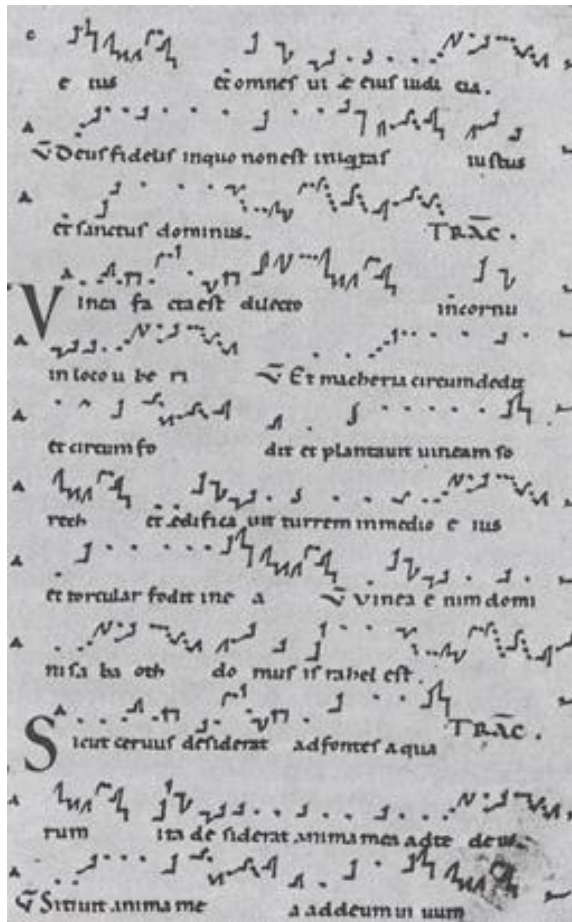 e ius et omnes ui e eius iudi cia.
V Deus fidelis inquo nonest iniqtas iustus
et sanctus dominus. TRAC.
Vinea fa cta est dilecto incornu
in loco u be ri V Et maceria circumdedit
et circum fo dit et plantauit uineam so
rech et edifica uit turrem inmedio e ius
et torcular fodit ine a V Vinea e nim domi
ni sa ba oth do mus israhel est.
TRAC.
Sicut ceruus desiderat adfontes aqua
rum ita de siderat anima mea adte deus.
V Sitiuit anima me a addeum ui uum